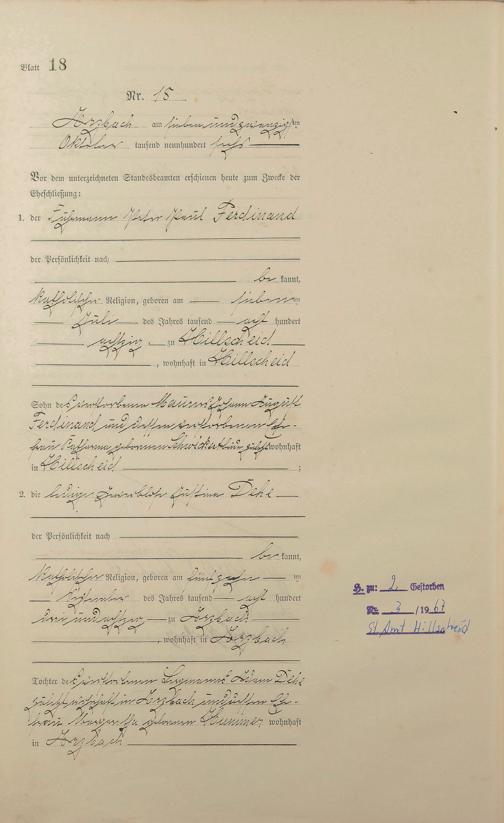 Blatt 18
Nr. 18
Arzbach am siebenundzwanzigsten
Oktober tausend neunhundert sechs
Vor dem unterzeichneten Standesbeamten erschienen heute zum Zwecke der
Eheschließung:
1. der Fuhrmann Peter Paul Ferdinand
der Persönlichkeit nach
be kannt,
katholischer Religion, geboren am sieben ten
Juli des Jahres tausend acht hundert
achtzig zu Hillscheid
, wohnhaft in Hillscheid
Sohn des verstorbenen Maurers Johann August
Ferdinand und dessen verstorbenen Ehe-
frau Katharina geborenen zuletzt wohnhaft
in Hillscheid ;
2. die ledige gewerblose Justina Dehe
der Persönlichkeit nach
be kannt,
katholischer Religion, geboren am fünfzehn ten
des Jahres tausend acht hundert
dreiundachtzig zu Arzbach
, wohnhaft in Arzbach
Tochter des verstorbenen Bergmanns Adam Dehe
zuletzt wohnhaft in Arzbach und dessen Ehe-
frau Margaretha geborenen wohnhaft
in Arzbach
H. zu: 2. Gestorben
Nr. 3 /19 67
St. Amt Hillscheid